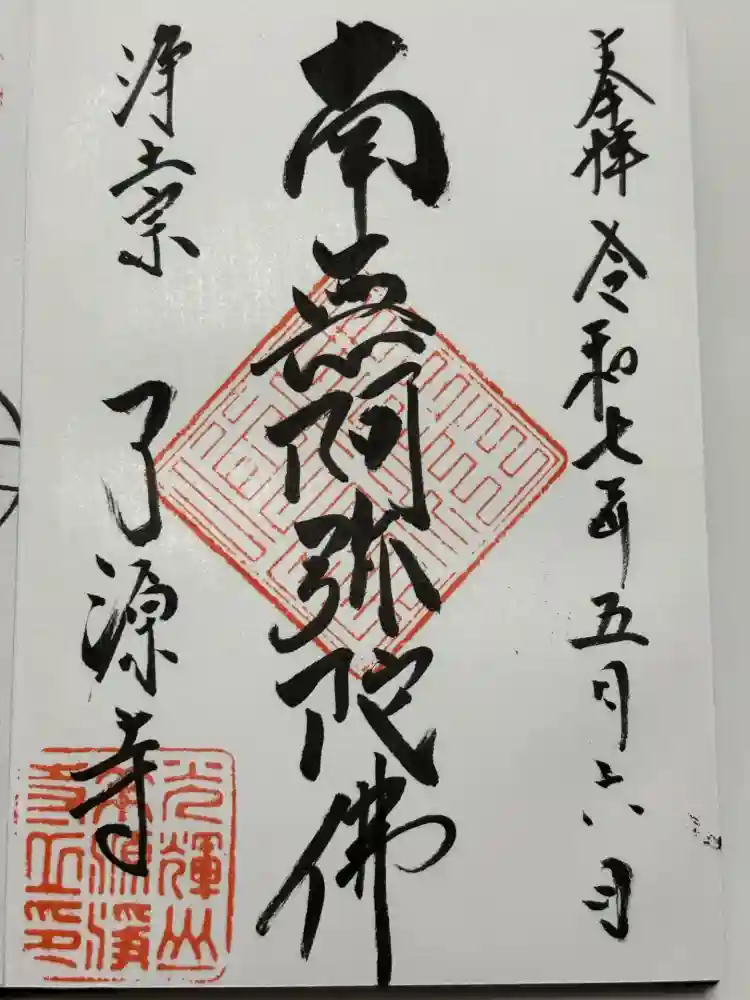 奉拝 令和七年五月六日
南無阿弥陀佛
浄土宗 了源寺
光輝山